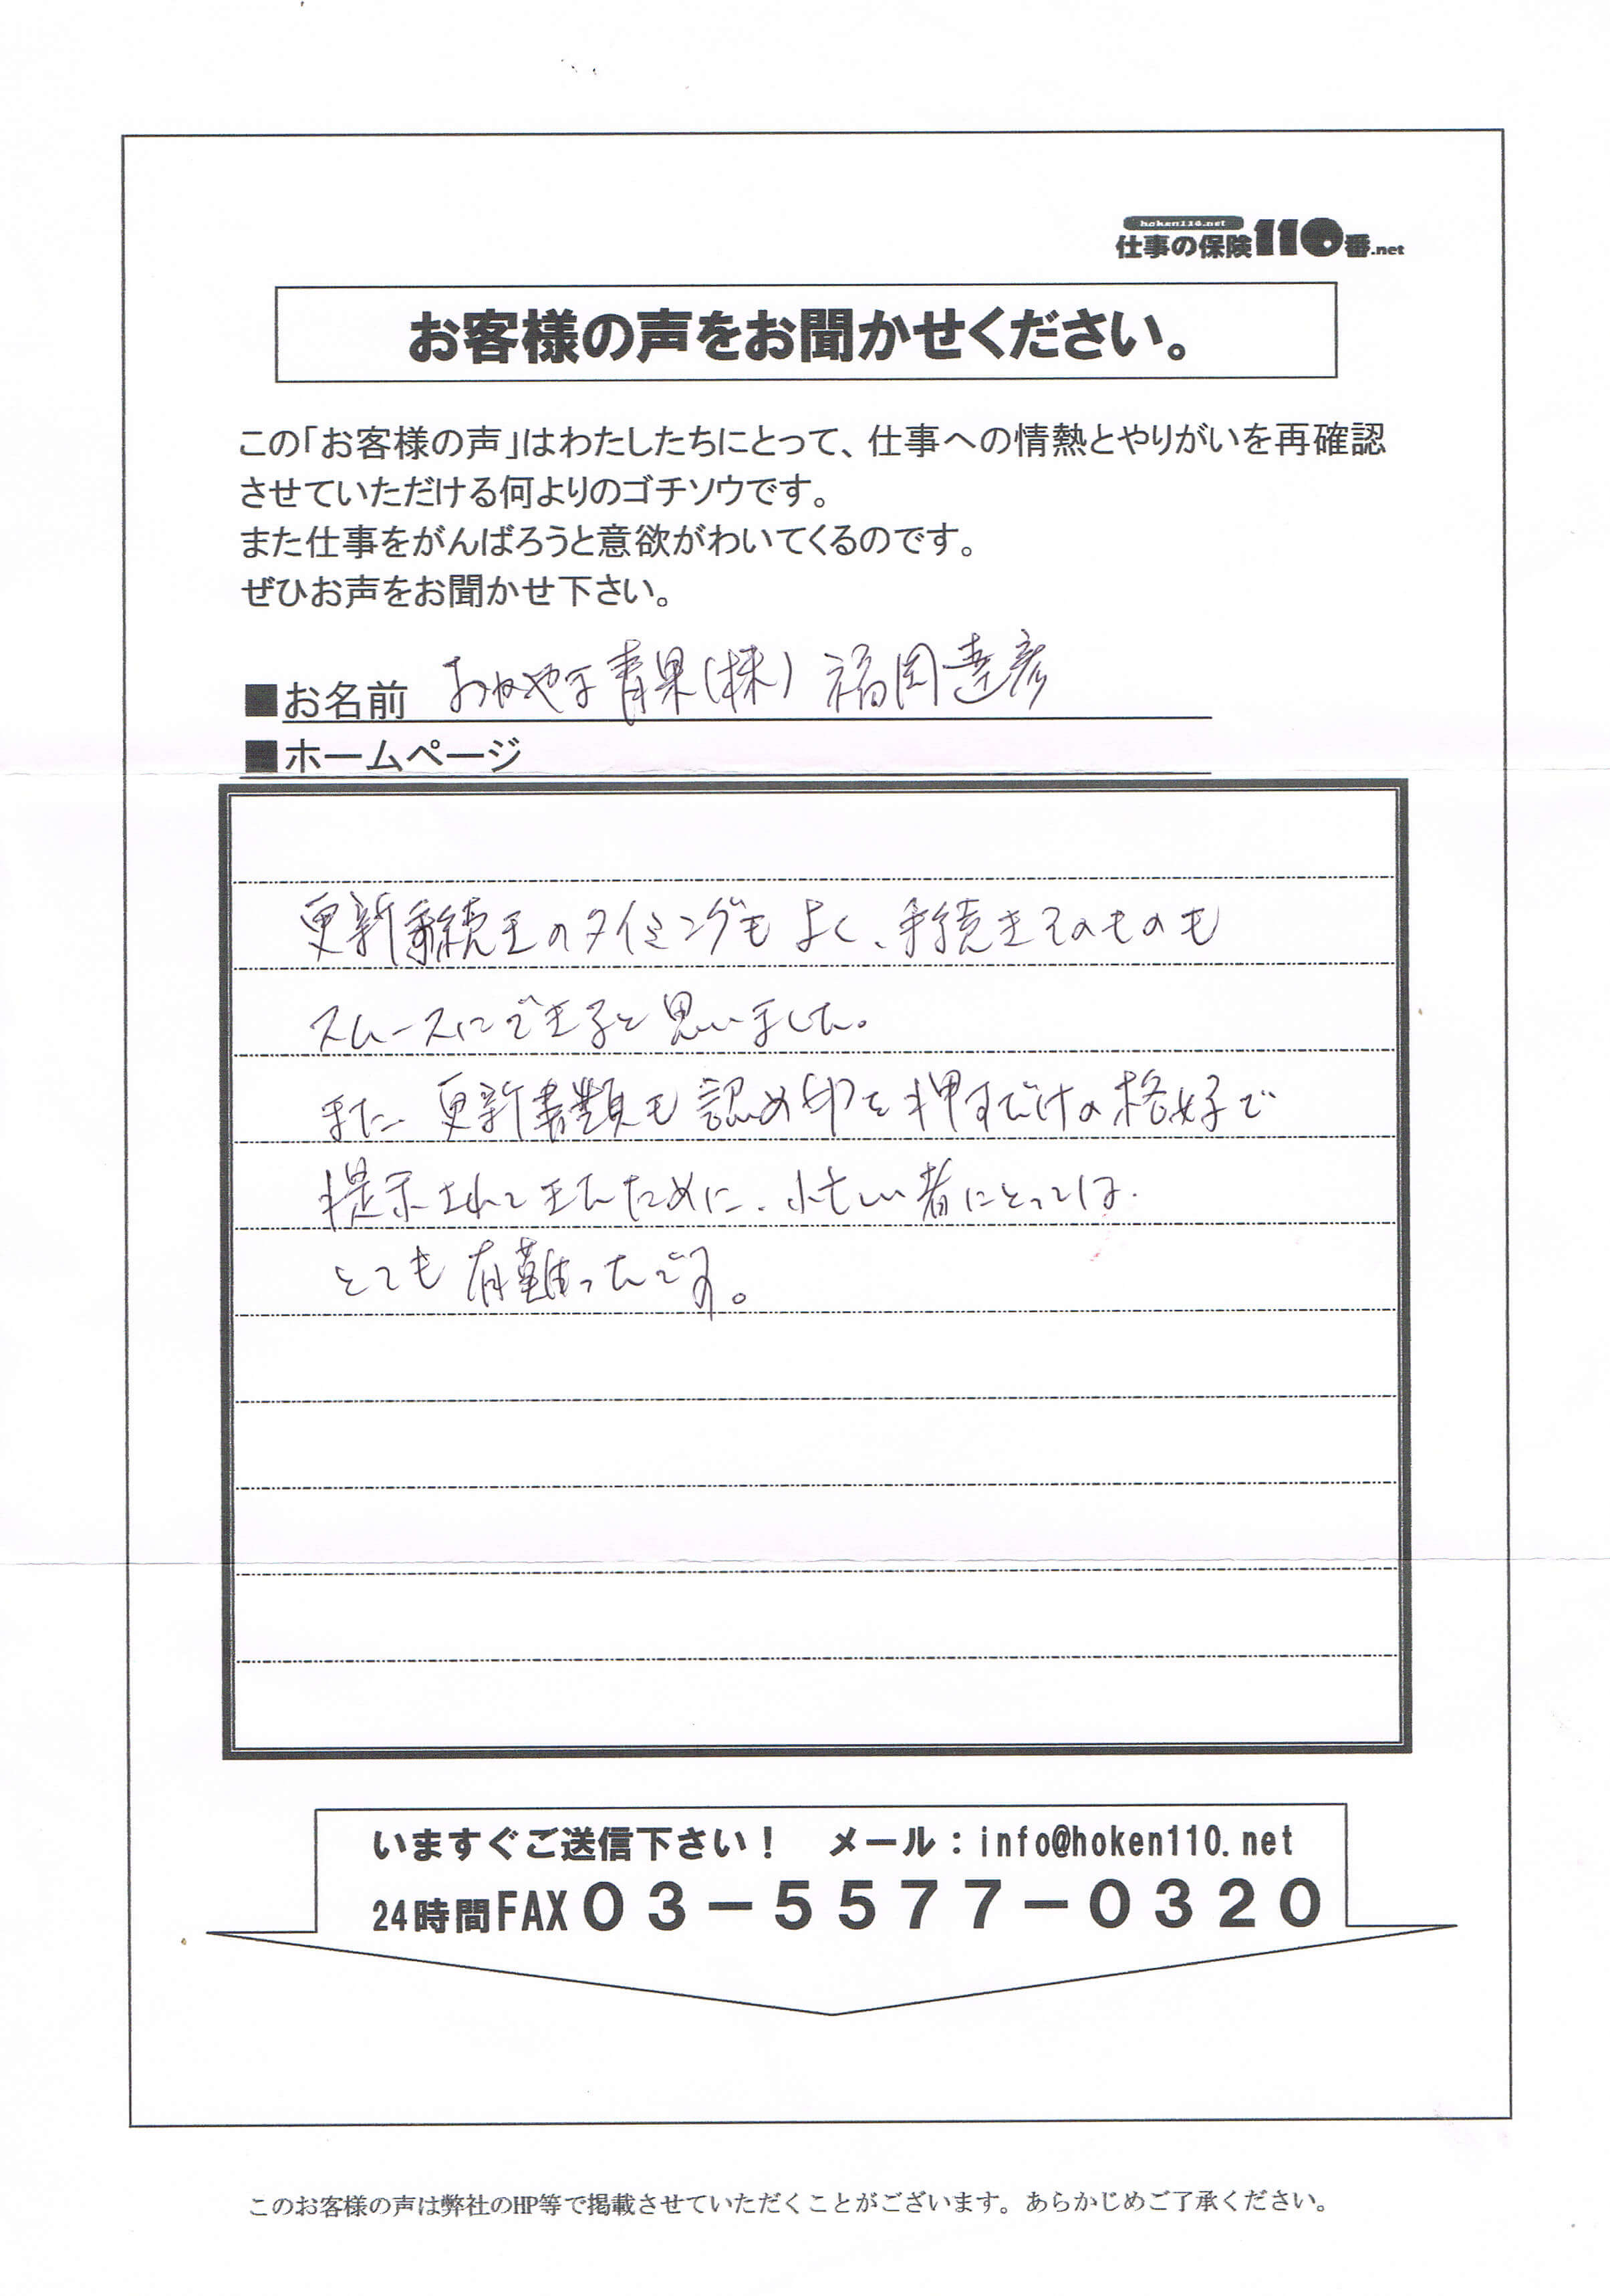 hoken110.net
仕事の保険110番.net
お客様の声をお聞かせください。
この「お客様の声」はわたしたちにとって、仕事への情熱とやりがいを再確認
させていただける何よりのゴチソウです。
また仕事をがんばろうと意欲がわいてくるのです。
ぜひお声をお聞かせ下さい。
■お名前 おかやま青果(株) 福岡達彦
■ホームページ
更新手続きのタイミングもよく、手続きそのものも
スムースにできると思いました。
また、更新書類も認め印を押すだけの格好で
提示されてきたために、忙しい者にとっては、
とても有難ったです。
いますぐご送信下さい！ メール：info@hoken110.net
24時間FAX０３－５５７７－０３２０
このお客様の声は弊社のHP等で掲載させていただくことがございます。あらかじめご了承ください。